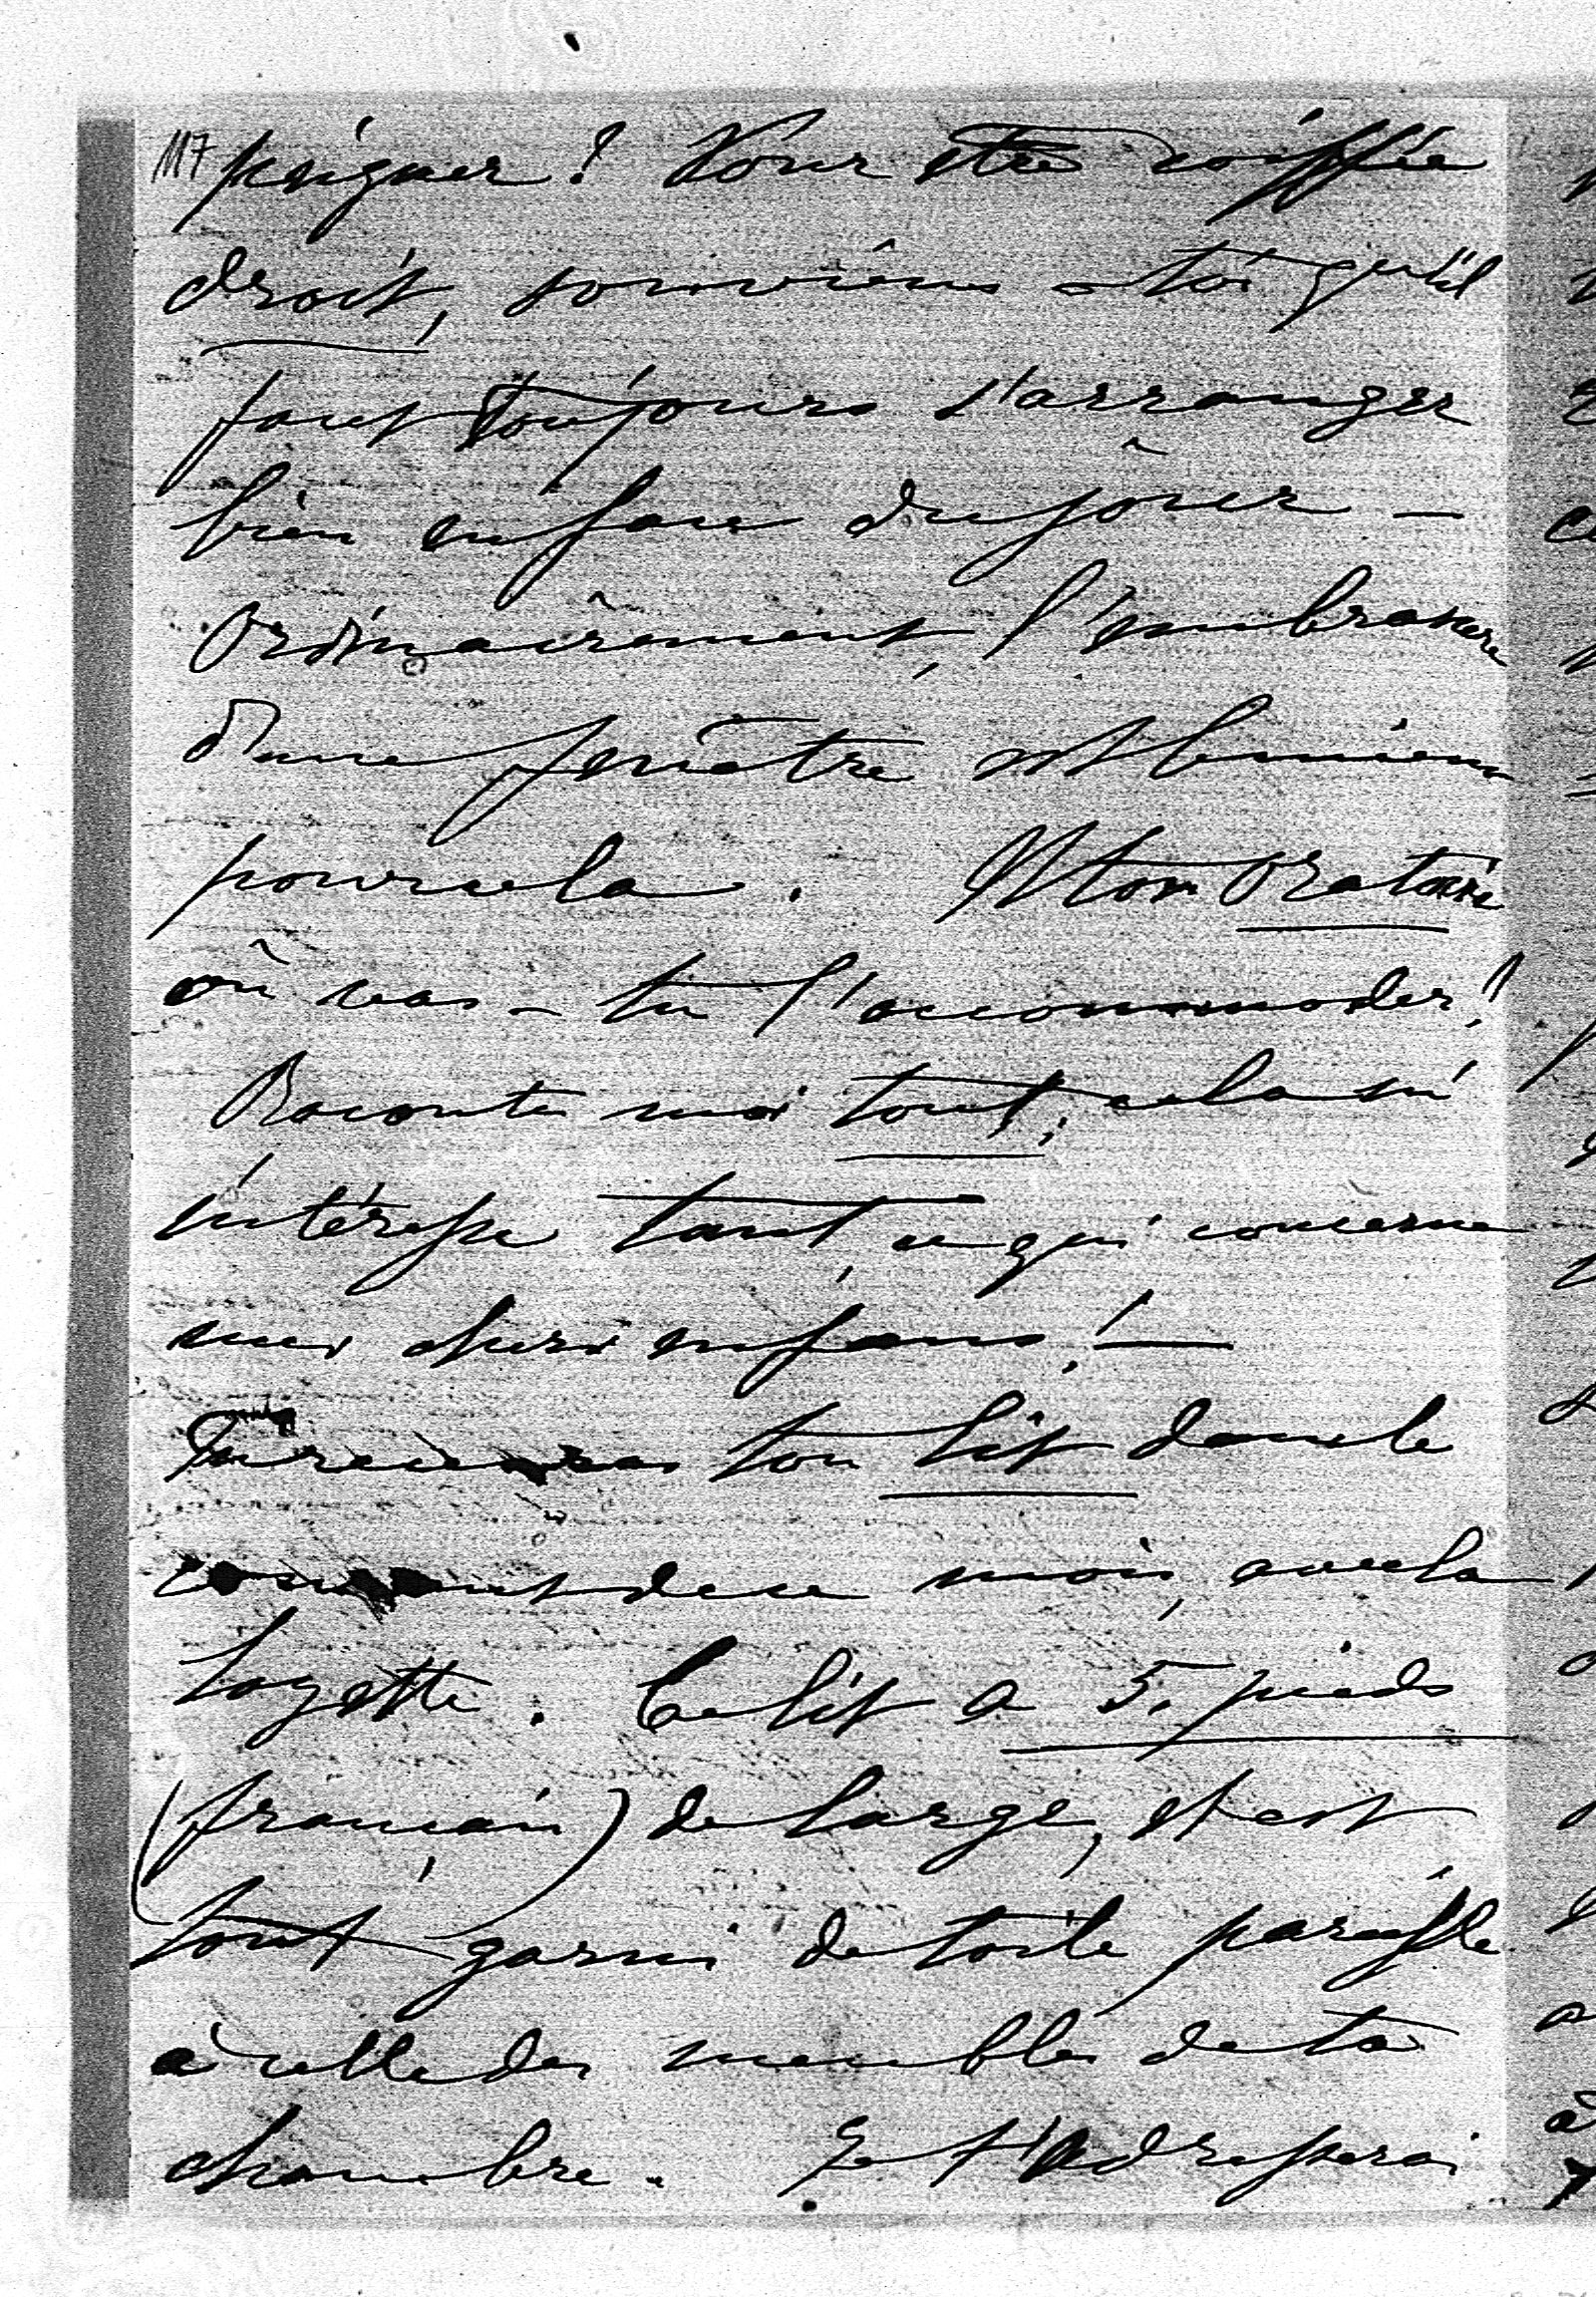 117 peigner? Pour être coiffée
droit, souviens-toi qu'il
faut toujours s'arranger
bien en face du jour -
Ordinairement, l'embrasure
d'une fenêtre est le mieux
pour cela. Et ton Oratoire
où vas-tu l'accommoder?
Raconte moi tout; cela m'
intéresse tant, ce qui concerne
mes chers enfans! -
Tu recevras ton lit dans le
courant de ce mois, avec la
Logette. Ce lit a 5. pieds
(français) de large, et est
tout garni de toile pareille
à celle des meubles de ta
chambre. Je t'adresserai